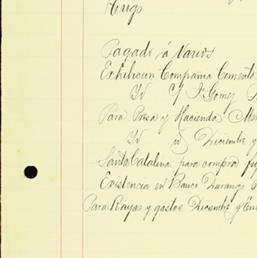 Hugo
Pagadi, á Varios
Exhibicion Compania Cemento
Id J F Gomez
Para Presa y Hacienda
Id Diciembre y
Santa Catalina para compra
Existencia en Banco Durango
Para Rayas y gastos Diciembre y En